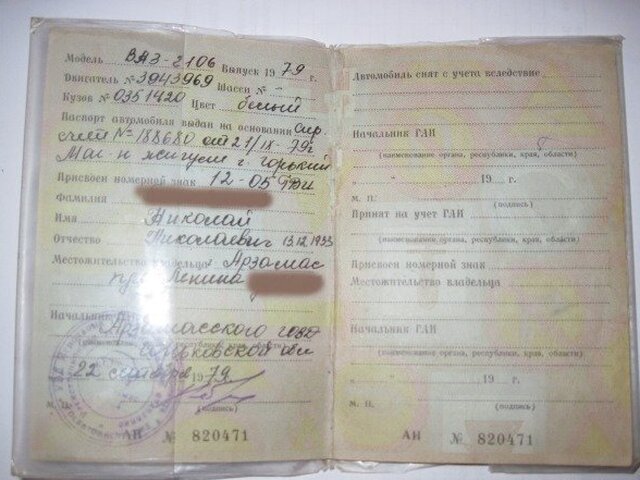 Модель ВАЗ-2106 Выпуск 1979 г.
Двигатель № 3943969 Шасси № -
Кузов № 0351420 Цвет белый
Паспорт автомобиля выдан на основании спр.
счёт № 188680 от 21/IX-79г
Маг-н жигули г. Горький
Присвоен номерной знак 12-05 ГВИ
Фамилия
Имя Николай
Отчество Николаевич 13.12.1933
Местожительство владельца Арзамас
пр. Ленина
Начальник
Арзамасского ГОВД
Горьковской обл
22 сентября 1979
М. П. (подпись)
АН № 820471
Автомобиль снят с учета вследствие
Начальник ГАИ
(наименование органа, республики, края, области)
„ “ 19 г.
М. П. (подпись)
Принят на учет ГАИ
(наименование органа, республики, края, области)
Присвоен номерной знак
Местожительство владельца
Начальник ГАИ
(наименование органа, республики, края, области)
„ “ 19 г.
М. П. (подпись)
АН № 820471